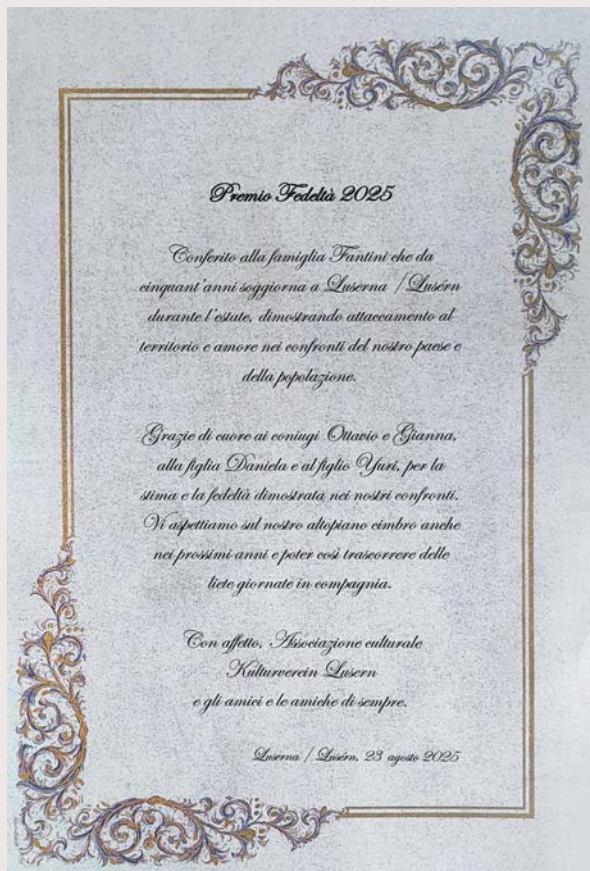 Premio Fedeltà 2025
Conferito alla famiglia Fantini che da
cinquant'anni soggiorna a Luserna / Lusérn
durante l'estate, dimostrando attaccamento al
territorio e amore nei confronti del nostro paese e
della popolazione.
Grazie di cuore ai coniugi Ottavio e Gianna,
alla figlia Daniela e al figlio Yuri, per la
stima e la fedeltà dimostrata nei nostri confronti.
Vi aspettiamo sul nostro altopiano cimbro anche
nei prossimi anni e poter così trascorrere delle
liete giornate in compagnia.
Con affetto, Associazione culturale
Kulturverein Lusern
e gli amici e le amiche di sempre.
Luserna / Lusérn, 23 agosto 2025